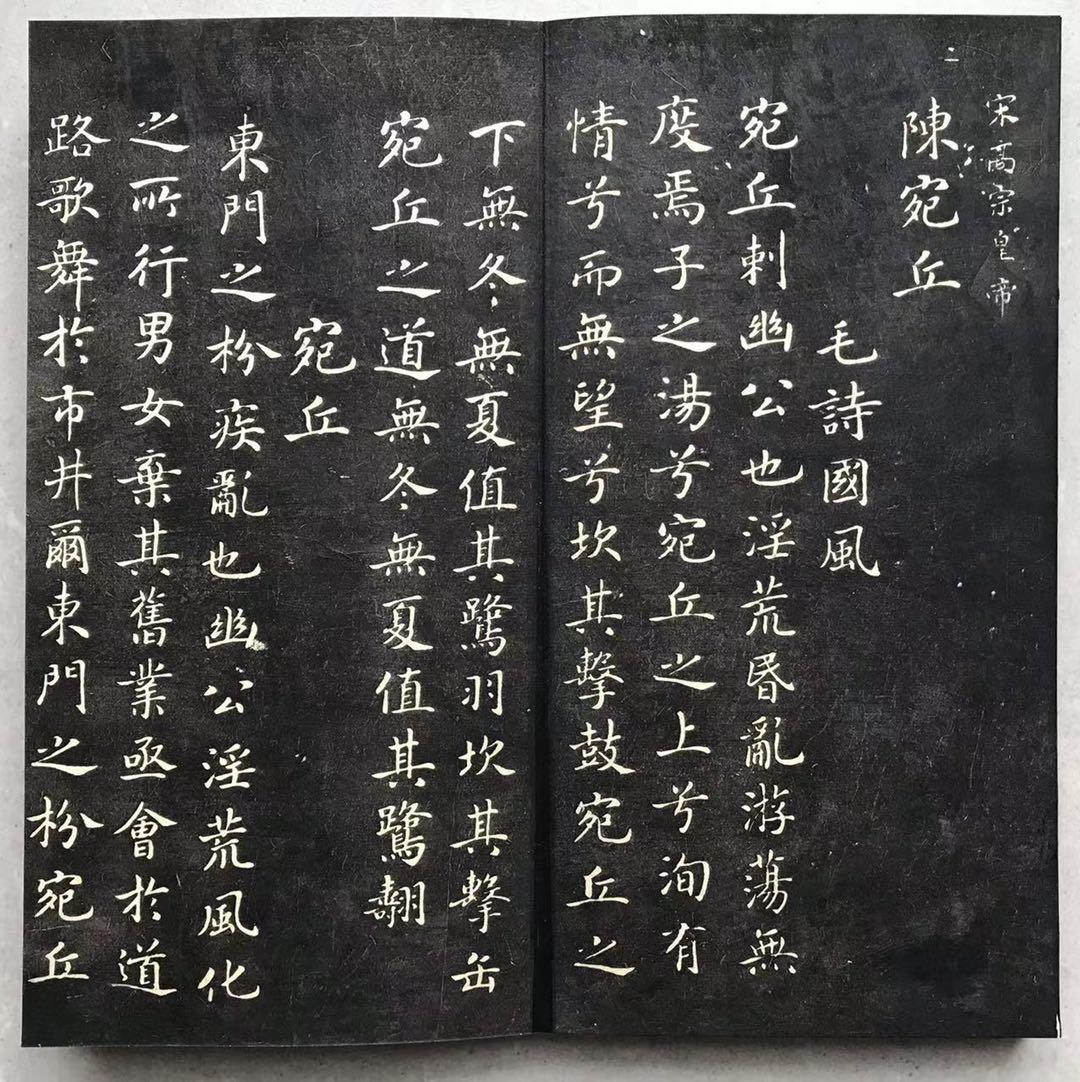 宋高宗皇帝
陳宛丘
毛詩國風
宛丘刺幽公也淫荒昏亂游蕩無
度焉子之湯兮宛丘之上兮洵有
情兮而無望兮坎其擊鼓宛丘之
下無冬無夏值其鷺羽坎其擊缶
宛丘之道無冬無夏值其鷺翿
宛丘
東門之枌疾亂也幽公淫荒風化
之所行男女棄其舊業亟會於道
路歌舞於市井爾東門之枌宛丘